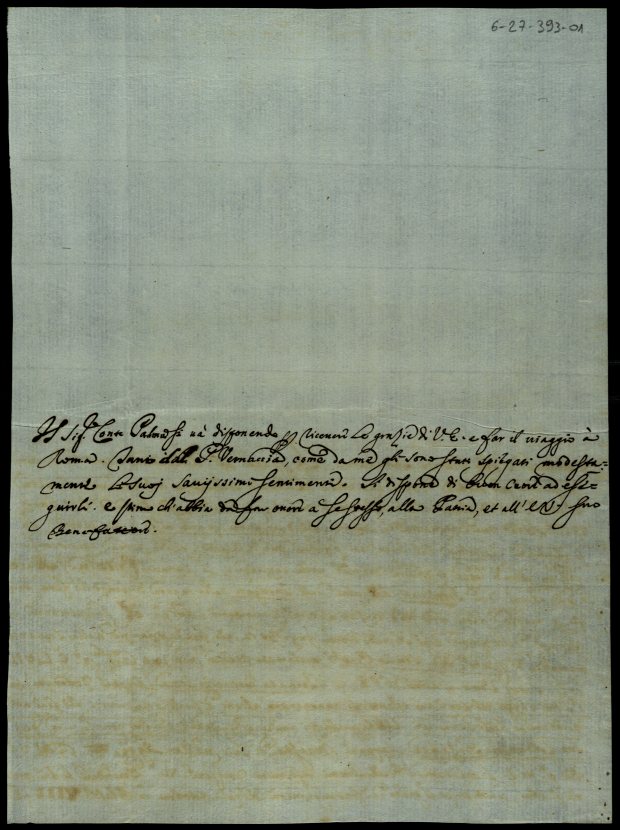 6-27-393-01
Il Sig.r Conte Palmese và disponendo p ricever le grazie di V.E. e far il viaggio à
Roma. Tanto dal P. Vernaccia, come da me gli sono stati spiegati modesta-
mente i suoj savijssimi sentimenti. Si dispone di buon cuore ad ese-
guirli. e stimo ch'abbia da far onore a se stesso, alla Patria, et all' E.V. suo
Benefattore.